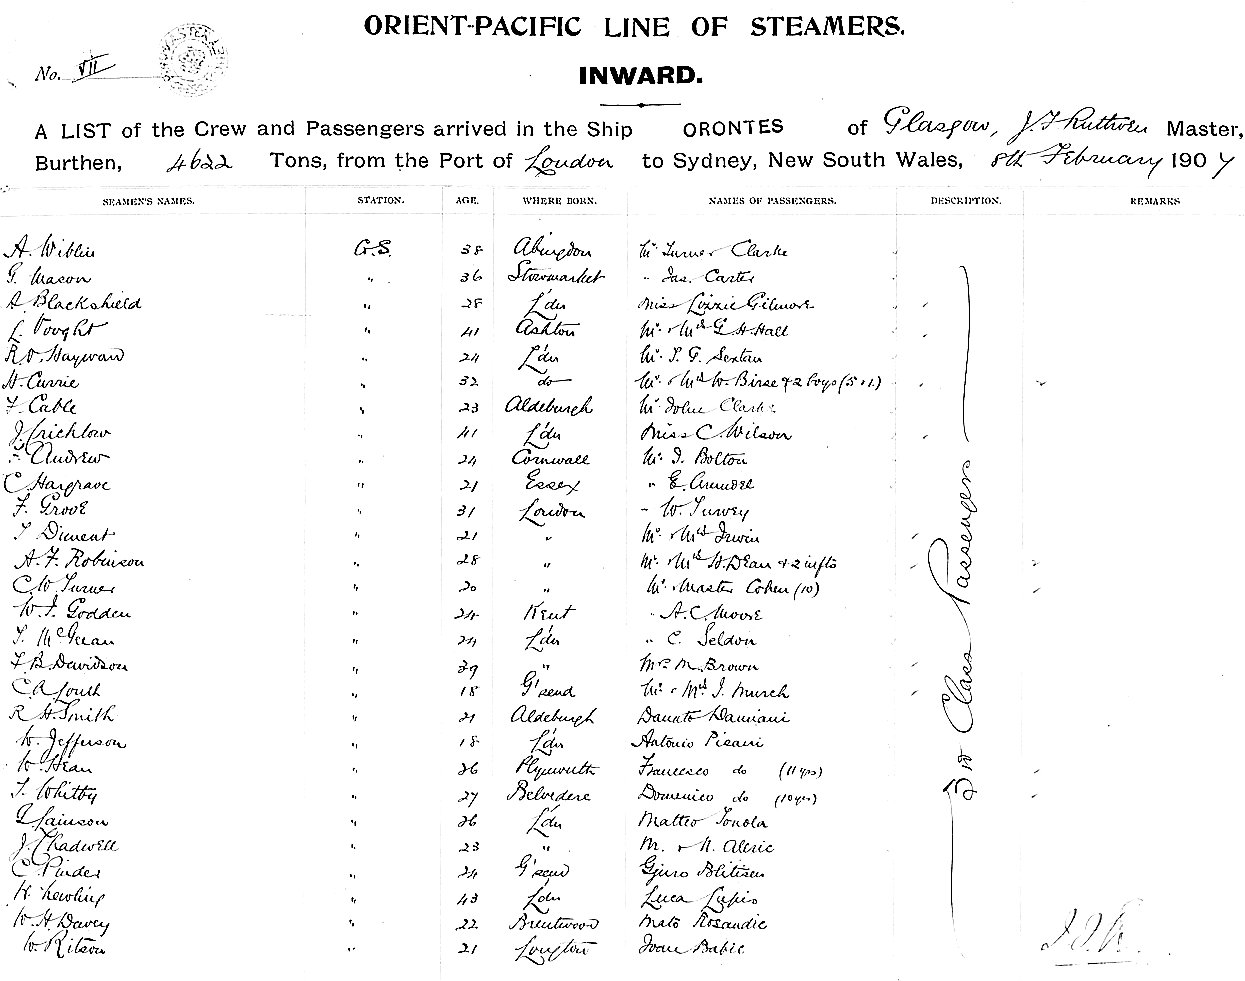 ORIENT-PACIFIC LINE OF STEAMERS.
No. VII
INWARD.
A LIST of the Crew and Passengers arrived in the Ship ORONTES of Glasgow, J. F. Ruthven Master,
Burthen, 4622 Tons, from the Port of London to Sydney, New South Wales, 8th February 1907
SEAMEN'S NAMES. STATION. AGE. WHERE BORN. NAMES OF PASSENGERS. DESCRIPTION. REMARKS
A. Wiblin G.S. 38 Abingdon Mr Turner Clarke
G. Mason " 36 Stowmarket " Jas. Carter
A Blackshield " 28 L'dn Miss Lizzie Gilmore
L Vought " 41 Ashton Mr. & Mrs G H Hall
R. V. Hayward " 24 L'dn Mr. T. G. Sexton
H. Currie " 32 do Mr. & Mrs W. Birse & 2 boys (5 & 1)
F. Cable " 23 Aldeburgh Mr John Clarke
J. Crichlow " 41 L'dn Miss C. Wilson
F. Andrew " 24 Cornwall Mr. J. Bolton
C Hargrave " 21 Essex " E. Arundel
F. Grove " 31 London " W Turvey
T Diment " 21 " Mr. & Mrs Irwin
A. F. Robinson " 28 " Mr. & Mrs H. Dean & 2 infts
C. W. Turner " 20 " Mr. & Master Cohen (10)
W. J. Godden " 24 Kent " A. C. Moore
T. McGrean " 24 L'dn " C. Seldon
F. B. Davidson " 39 " Mrs M. Brown
C. A. South " 18 G'send Mr. & Mrs J. Murch
R H. Smith " 21 Aldeburgh Donato Damiani
W. Jefferson " 18 L'dn Antonio Pisani
W. Hean " 26 Plymouth Francesco do (11 yrs)
T. Whitby " 27 Belvedere Domenico do (10 yrs)
" 26 L'dn Matteo Tonola
J. Chadwell " 23 " M. & N. Aleric
C. Pinder " 24 G'send Giuro
H. Newling " 43 L'dn Luca Lupis
W. H. Davey " 22 Brentwood Mato Rosandic
W. Ritson " 21 Longton Ivan Babic
3rd Class Passengers
J. F. R.